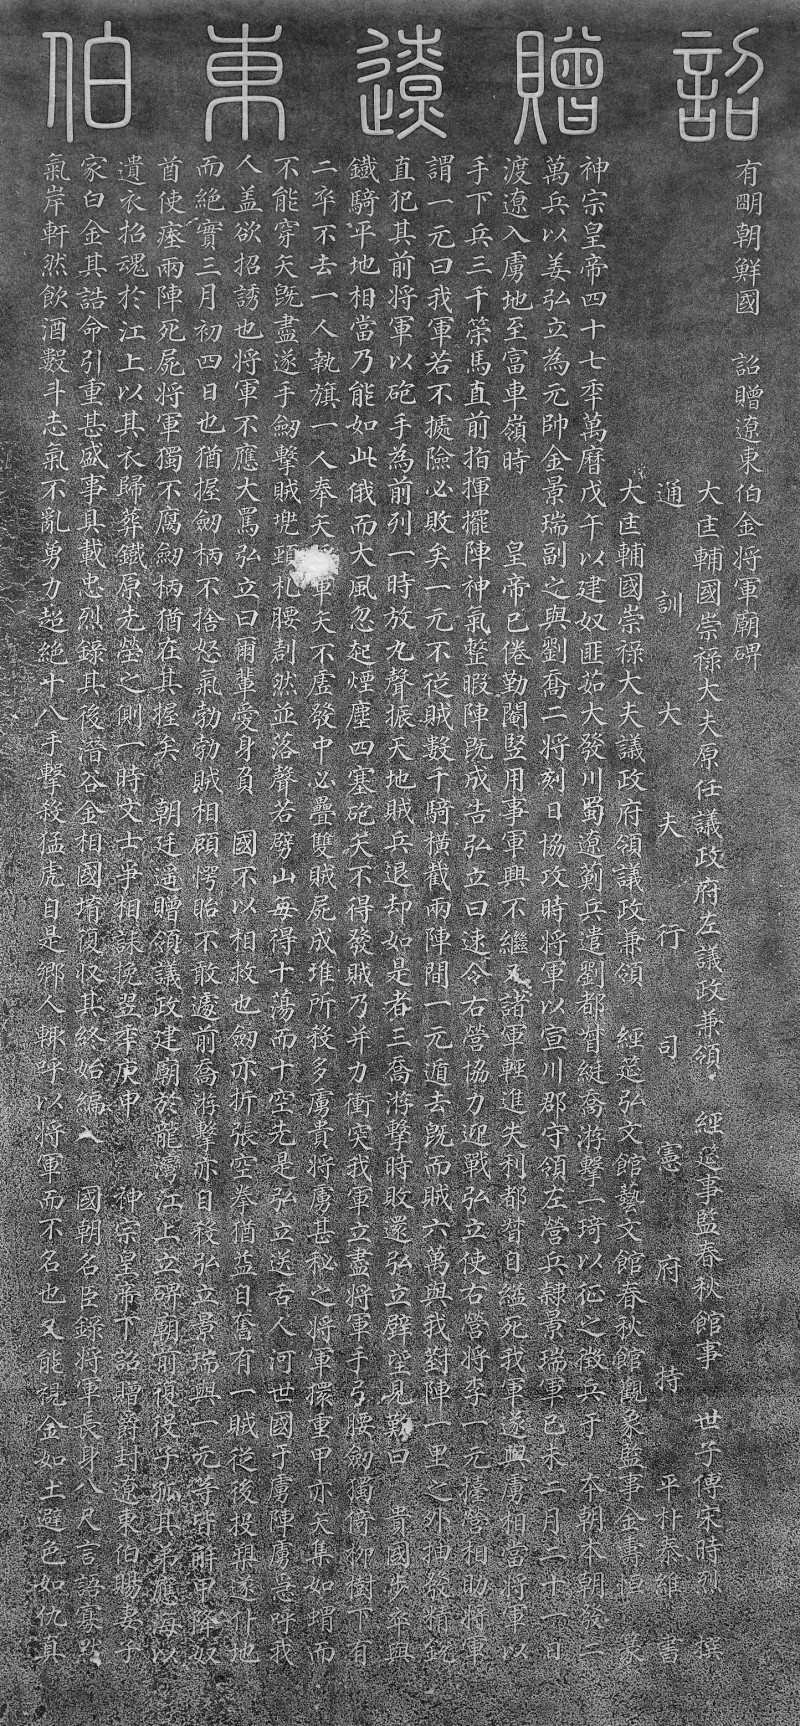 詔贈遼東伯
有明朝鮮國 詔贈遼東伯金將軍廟碑
大匡輔國崇祿大夫原任議政府左議政兼領 經筵事監春秋館事 世子傅宋時烈 撰
通訓大夫行司憲府持平朴泰維 書
大匡輔國崇祿大夫議政府領議政兼領 經筵弘文館藝文館春秋館觀象監事金壽恒 篆
神宗皇帝四十七年萬曆戊午以建奴匪茹大發川蜀遼薊兵遣劉都督綎喬游擊一琦以征之徵兵于 本朝本朝發二
萬兵以姜弘立為元帥金景瑞副之與劉喬二將刻日協攻時將軍以宣川郡守領左營兵隸景瑞軍己未二月二十一日
渡遼入虜地至富車嶺時 皇帝已倦勤閹竪用事軍興不繼又諸軍輕進失利都督自縊死我軍遂與虜相當將軍以
手下兵三千策馬直前指揮擺陣神氣整暇陣旣成告弘立曰速令右營協力迎戰弘立使右營將李一元擡營相助將軍
謂一元曰我軍若不據險必敗矣一元不從賊數千騎橫截兩陣間一元遁去旣而賊六萬與我對陣一里之外抽發精銳
直犯其前將軍以砲手為前列一時放丸聲振天地賊兵退却如是者三喬游擊時敗還弘立壁望見歎曰 貴國步卒與
鐵騎平地相當乃能如此俄而大風忽起煙塵四塞砲矢不得發賊乃幷力衝突我軍立盡將軍手弓腰劒獨倚柳樹下有
二卒不去一人執旗一人奉矢軍矢不虛發中必疊雙賊屍成堆所殺多虜貴將虜甚秘之將軍擐重甲亦矢集如蝟而
不能穿矢旣盡遂手劒擊賊兠頸札腰割然並落聲若劈山每得十蕩而十空先是弘立送舌人河世國于虜陣虜急呼我
人盖欲招誘也將軍不應大罵弘立曰爾輩愛身負 國不以相救也劒亦折張空拳猶益自奮有一賊從後投槊遂仆地
而絶實三月初四日也猶握劒柄不捨怒氣勃勃賊相顧愕眙不敢遽前喬游擊亦自殺弘立景瑞與一元等皆解甲降奴
酋使瘞兩陣死屍將軍獨不腐劒柄猶在其握矣 朝廷遥贈領議政建廟於龍灣江上立碑廟前復役子孤其弟應海以
遺衣招魂於江上以其衣歸葬鐵原先塋之側一時文士爭相誄挽翌年庚申 神宗皇帝下詔贈爵封遼東伯賜妻子
家白金其誥命引重甚盛事具載忠烈錄其後潛谷金相國堉復収其終始編入 國朝名臣錄將軍長身八尺言語寡默
氣岸軒然飮酒數斗志氣不亂勇力超絶十八手擊殺猛虎自是鄕人輒呼以將軍而不名也又能視金如土避色如仇真